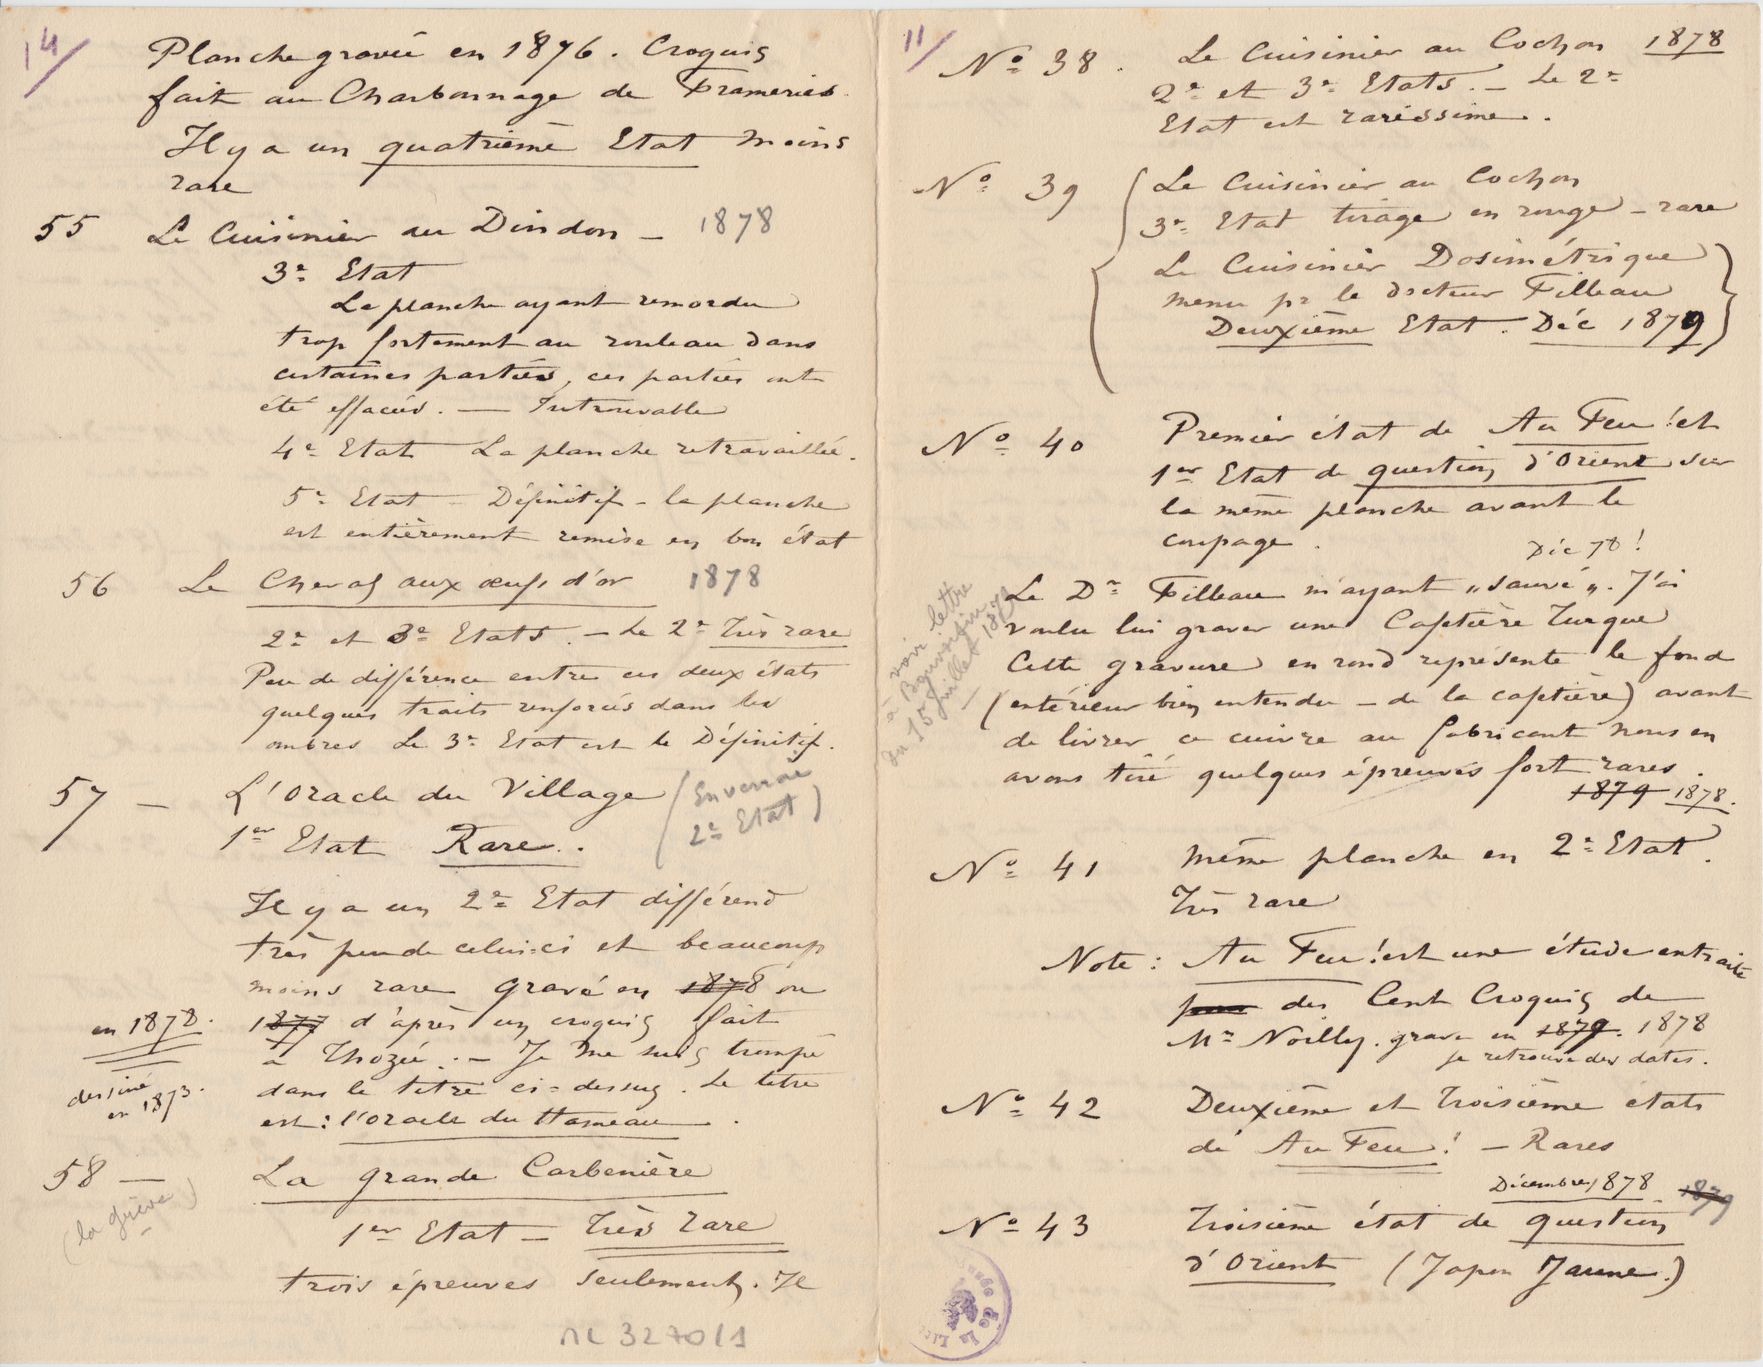 14/
Planche gravée en 1876. Croquis
fait au Charbonnage de Frameries.
Il y a un quatrième Etat moins
rare
55 Le Cuisinier au Dindon – 1878
3e Etat
La planche ayant remordu
trop fortement au rouleau dans
certaines parties, ces parties ont
été effacées. — Introuvable
4e Etat La planche retravaillée.
5e Etat – Définitif – la planche
est entièrement remise en bon état
56 Le Cheval aux œufs d'or 1878
2e et 3e Etats. – Le 2e Très rare
Peu de différence entre ces deux états
quelques traits renforcés dans les
ombres Le 3e Etat est le Définitif.
57 — L'Oracle du Village (Enverrai
1er Etat Rare. 2e Etat)
Il y a un 2e Etat différend
très peu de celui-ci et beaucoup
moins rare gravé en 1878 ou
en 1878. 1877 d'après un croquis fait
à Thozée. – Je me suis trompé
dessiné en 1873. dans le titre ci-dessus. Le titre
est : l'Oracle du Hameau.
58 — La grande Carbenière
(la grève)
1er Etat – Très rare
trois épreuves seulement. Il
ML 3270/1
11/
No 38. Le Cuisinier au Cochon 1878
2e et 3e Etats. – Le 2e
Etat est rarissime.
No 39 (Le Cuisinier au Cochon
3e Etat tirage en rouge – rare
Le Cuisinier Dosimétrique
menu pr le docteur Filleau
Deuxième Etat. Déc 1879)
No 40 Premier état de Au Feu ! et
1er Etat de question d'Orient sur
la même planche avant le
coupage.
Déc 78 !
Le Dr Filleau m'ayant „sauvé„. J'ai
voulu lui graver une Cafetière Turque
Cette gravure en rond représente le fond
(extérieur bien entendu – de la cafetière) avant
de livrer ce cuivre au fabricant nous en
avons tiré quelques épreuves fort rares.
1879 1878.
voir lettre
à
du 15 juillet 1879
No 41 même planche en 2e Etat.
Très rare
Note : Au Feu ! est une étude extraite
des Cent Croquis de
Mr Noilly. gravé en 1879. 1878
je retrouve des dates.
No 42 Deuxième et Troisième états
de Au Feu ! – Rares
Décembre 1878 1879
No 43 Troisième état de question
d'Orient (Japon Jaune.)